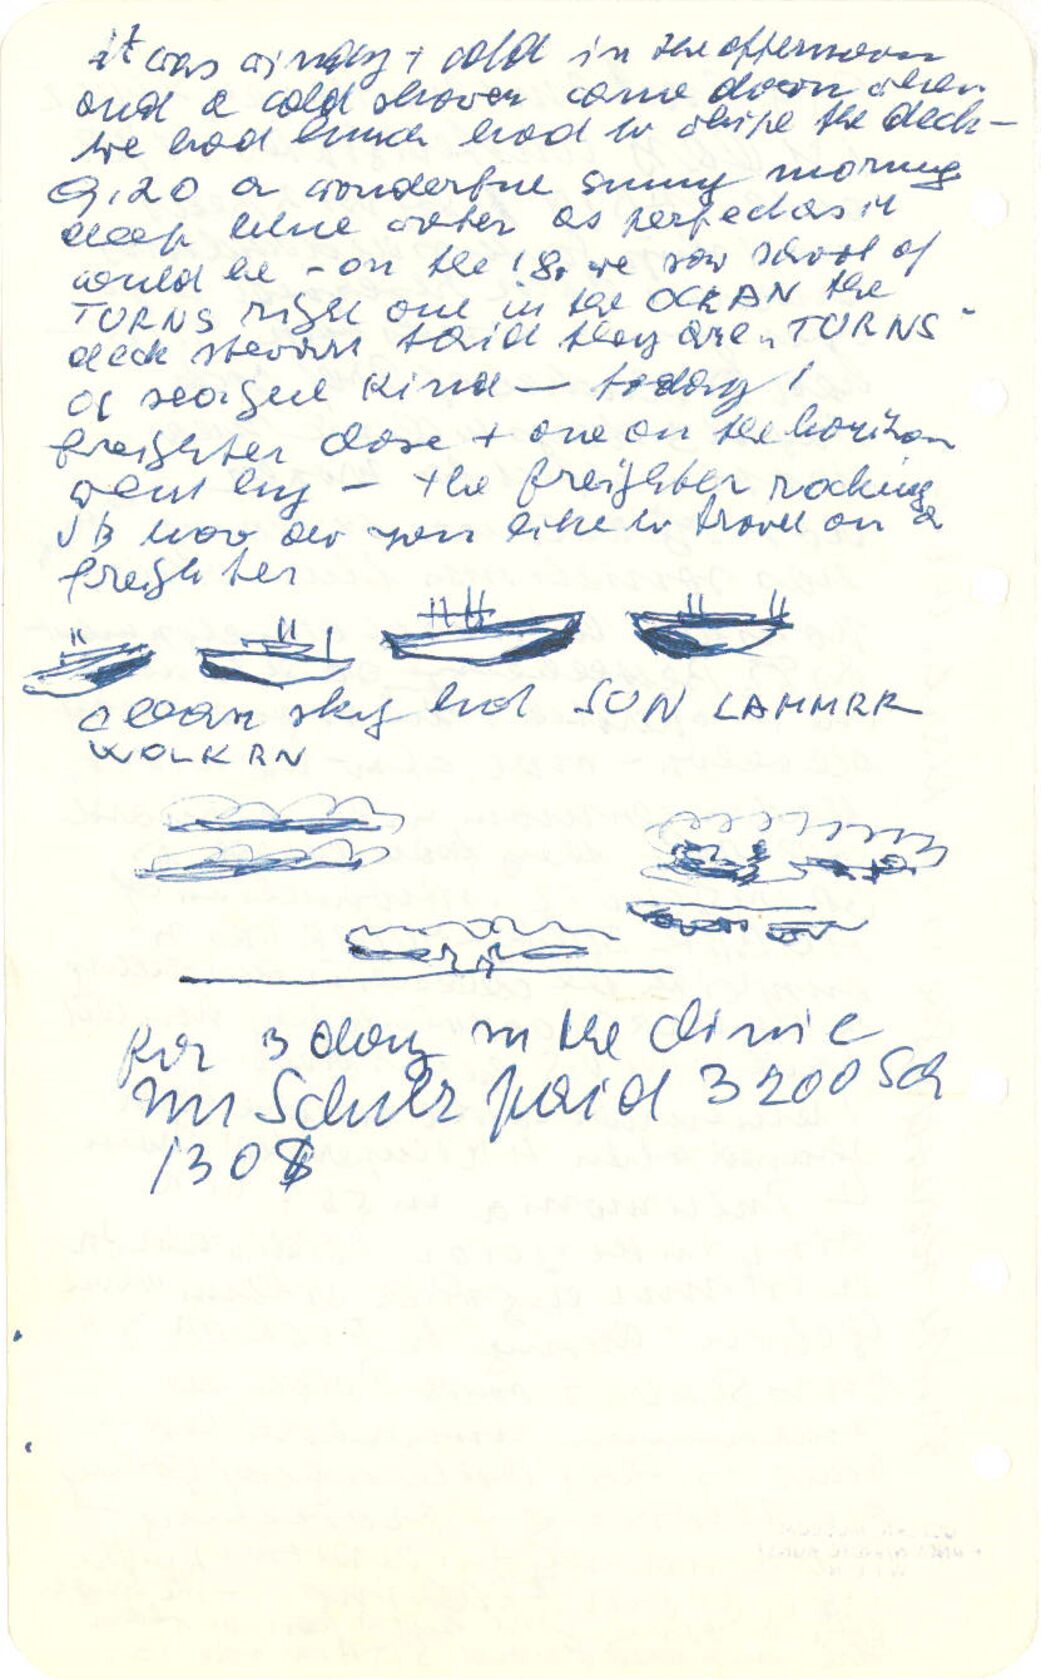 it was windy + cold in the afternoon
and a cold shower came down when
we had lunch had to whipe the deck -
9.20 a wonderful sunny morning
deep blue water as perfect as it
would be - on the 18. we saw school of
TURNS right out in the OCEAN the
deck stewart said they are „TURNS"
of seagul kind - today 1
freighter close + one on the horizon
went by - the freighter rocking
JB how do you like to travel on a
freighter
clear sky but SUN LAMMER
WOLKEN
for 3 day in the clinic
Mr Schulz paid 3200 Sch
130$